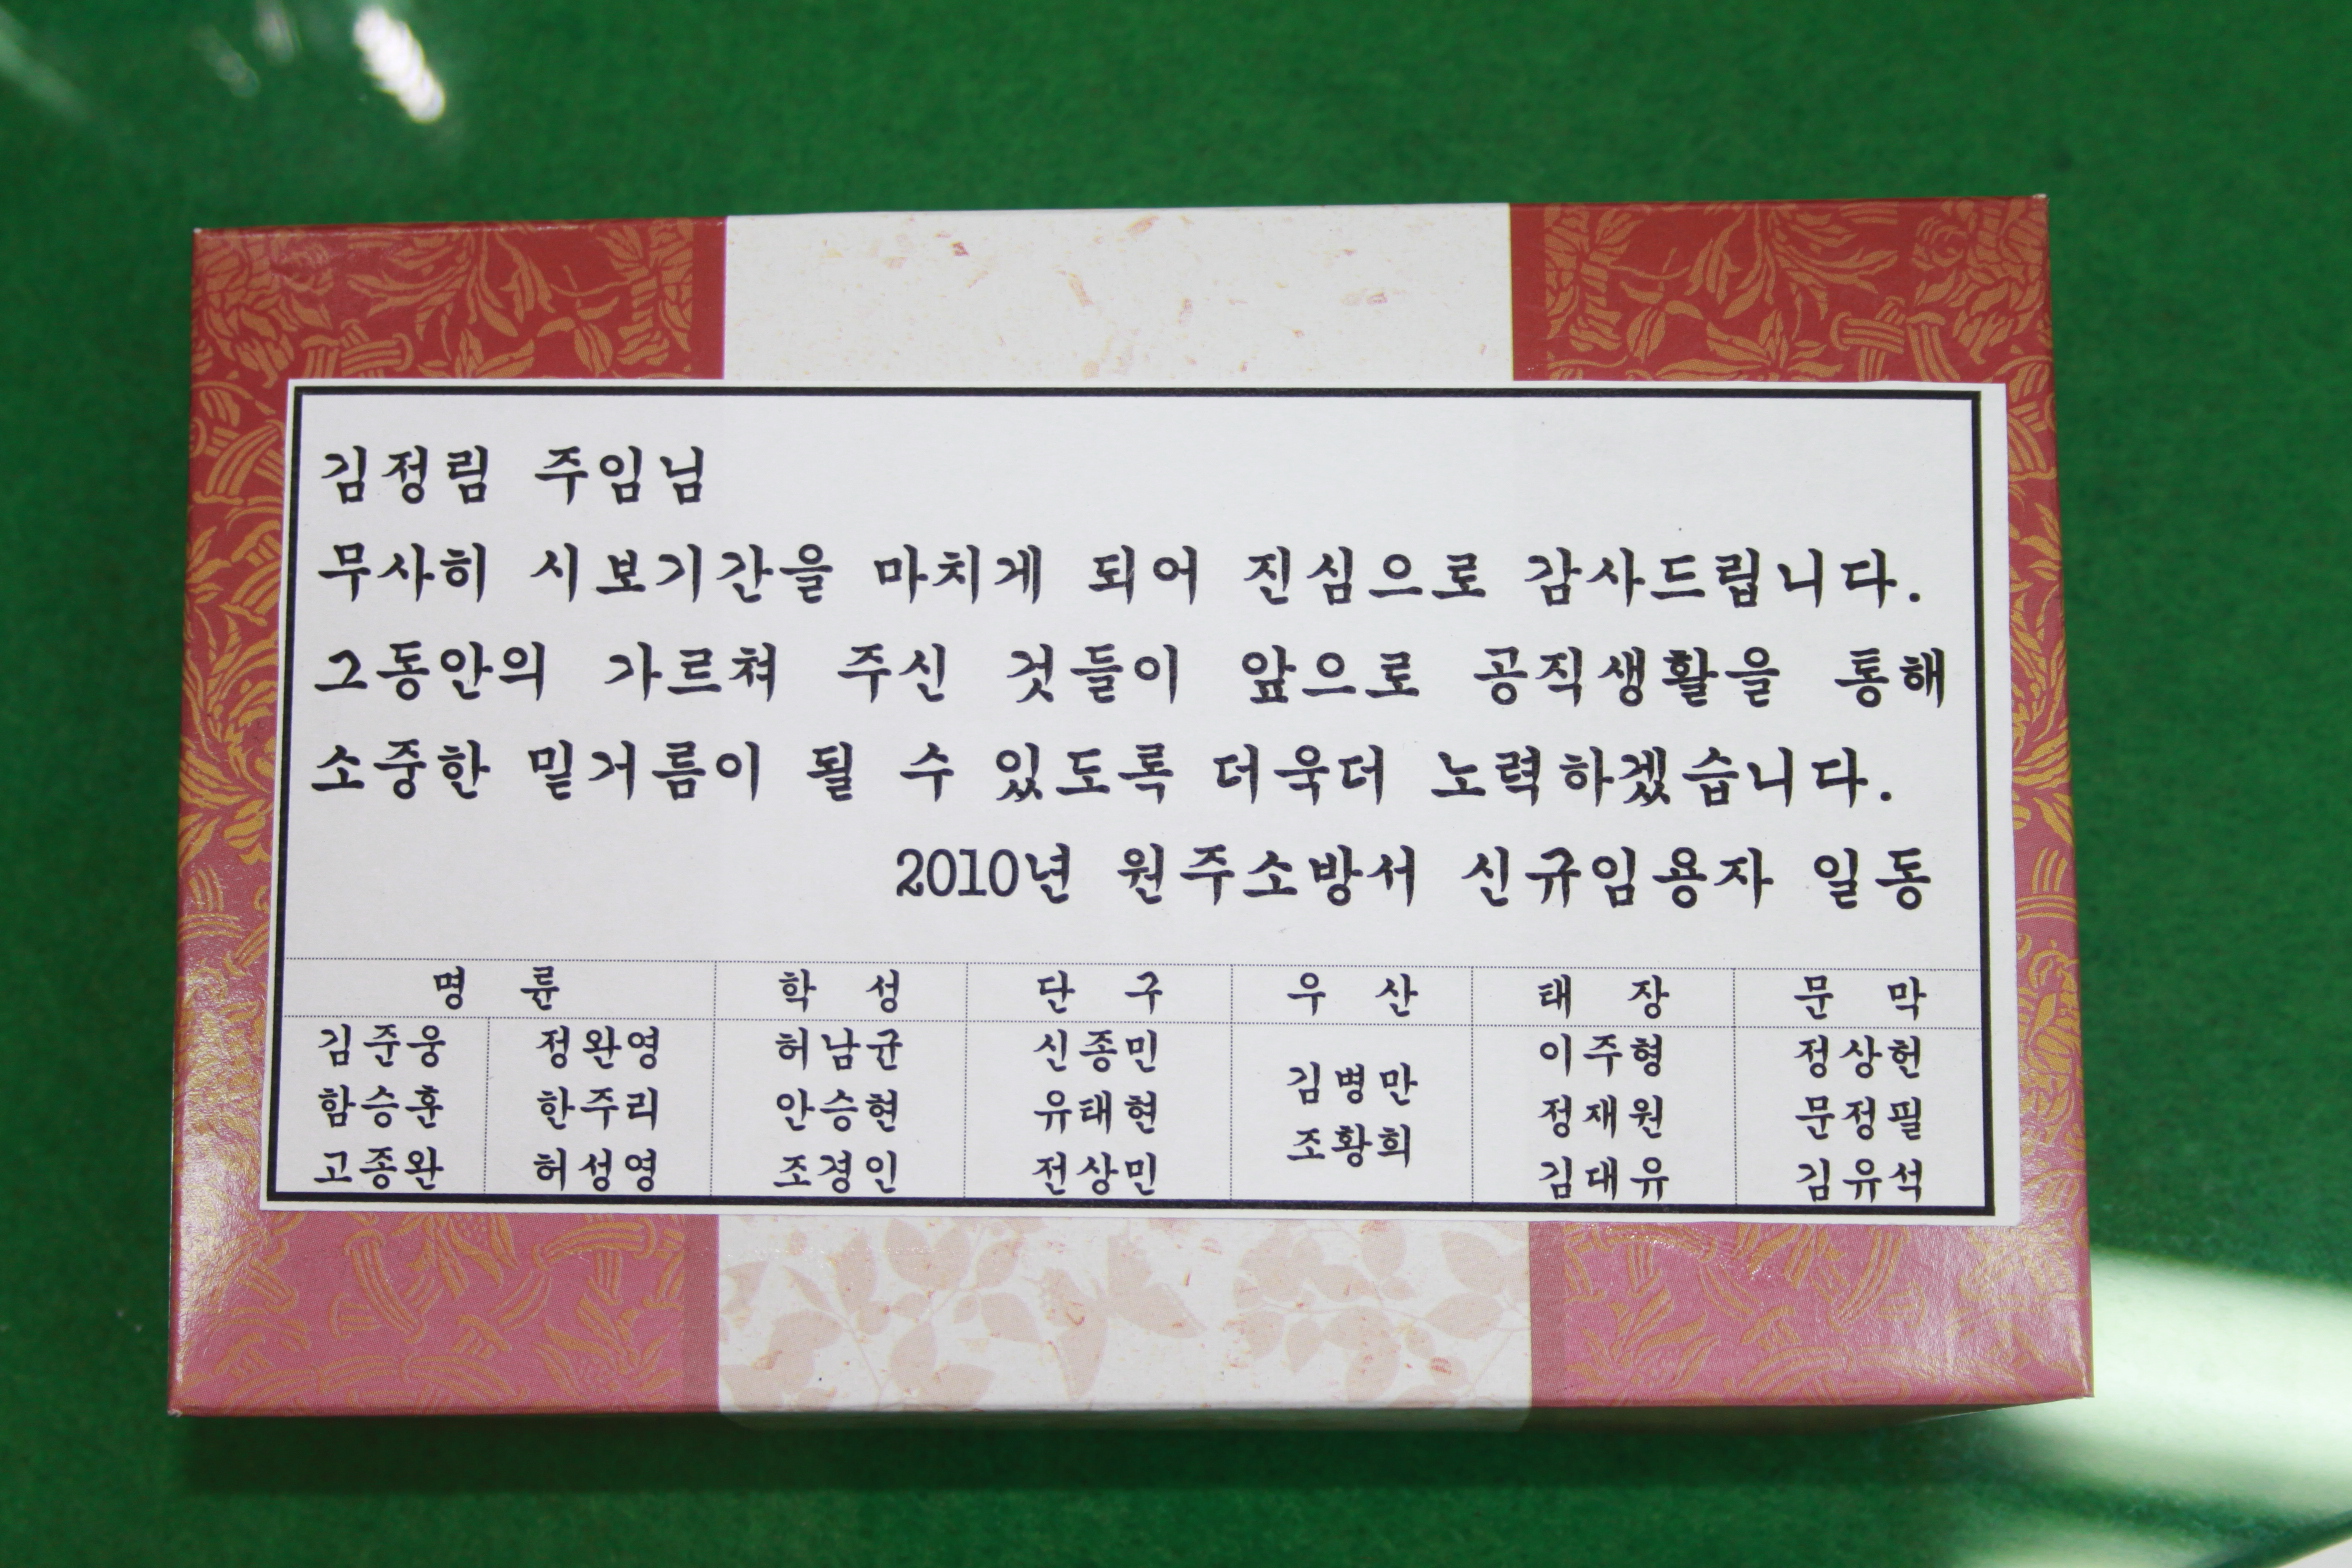 김정림 주임님
무사히 시보기간을 마치게 되어 진심으로 감사드립니다.
그동안의 가르쳐 주신 것들이 앞으로 공직생활을 통해
소중한 밑거름이 될 수 있도록 더욱더 노력하겠습니다.
2010년 원주소방서 신규임용자 일동
명 륜 학 성 단 구 우 산 태 장 문 막
김준웅 정완영 허남균 신종민 이주형 정상헌
김병만
함승훈 한주리 안승현 유태헌 정재원 문정필
조황희
고종완 허성영 조경인 전상민 김대유 김유석